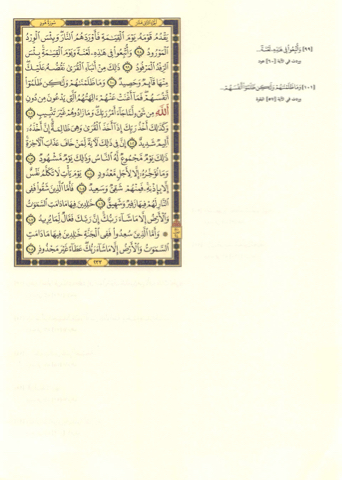 سُورَةُ هُودٍ
يَقْدُمُ قَوْمَهُۥ يَوْمَ ٱلْقِيَٰمَةِ فَأَوْرَدَهُمُ ٱلنَّارَ وَبِئْسَ ٱلْوِرْدُ
ٱلْمَوْرُودُ ٩٨ وَأُتْبِعُوا۟ فِى هَٰذِهِۦ لَعْنَةً وَيَوْمَ ٱلْقِيَٰمَةِ بِئْسَ
ٱلرِّفْدُ ٱلْمَرْفُودُ ٩٩ ذَٰلِكَ مِنْ أَنۢبَآءِ ٱلْقُرَىٰ نَقُصُّهُۥ عَلَيْكَ
مِنْهَا قَآئِمٌ وَحَصِيدٌ ١٠٠ وَمَا ظَلَمْنَٰهُمْ وَلَٰكِن ظَلَمُوٓا۟
أَنفُسَهُمْ فَمَآ أَغْنَتْ عَنْهُمْ ءَالِهَتُهُمُ ٱلَّتِى يَدْعُونَ مِن دُونِ
ٱللَّهِ مِن شَىْءٍ لَّمَّا جَآءَ أَمْرُ رَبِّكَ وَمَا زَادُوهُمْ غَيْرَ تَتْبِيبٍ ١٠١
وَكَذَٰلِكَ أَخْذُ رَبِّكَ إِذَآ أَخَذَ ٱلْقُرَىٰ وَهِىَ ظَٰلِمَةٌ إِنَّ أَخْذَهُۥٓ
أَلِيمٌ شَدِيدٌ ١٠٢ إِنَّ فِى ذَٰلِكَ لَءَايَةً لِّمَنْ خَافَ عَذَابَ ٱلْءَاخِرَةِ
ذَٰلِكَ يَوْمٌ مَّجْمُوعٌ لَّهُ ٱلنَّاسُ وَذَٰلِكَ يَوْمٌ مَّشْهُودٌ ١٠٣
وَمَا نُؤَخِّرُهُۥٓ إِلَّا لِأَجَلٍ مَّعْدُودٍ ١٠٤ يَوْمَ يَأْتِ لَا تَكَلَّمُ نَفْسٌ
إِلَّا بِإِذْنِهِۦ فَمِنْهُمْ شَقِىٌّ وَسَعِيدٌ ١٠٥ فَأَمَّا ٱلَّذِينَ شَقُوا۟ فَفِى
ٱلنَّارِ لَهُمْ فِيهَا زَفِيرٌ وَشَهِيقٌ ١٠٦ خَٰلِدِينَ فِيهَا مَا دَامَتِ ٱلسَّمَٰوَٰتُ
وَٱلْأَرْضُ إِلَّا مَا شَآءَ رَبُّكَ إِنَّ رَبَّكَ فَعَّالٌ لِّمَا يُرِيدُ ١٠٧
۞ وَأَمَّا ٱلَّذِينَ سُعِدُوا۟ فَفِى ٱلْجَنَّةِ خَٰلِدِينَ فِيهَا مَا دَامَتِ
ٱلسَّمَٰوَٰتُ وَٱلْأَرْضُ إِلَّا مَا شَآءَ رَبُّكَ عَطَآءً غَيْرَ مَجْذُوذٍ ١٠٨
٢٣٣
[٩٩] وَأُتْبِعُوا۟ فِى هَٰذِهِۦ لَعْنَةً...
وردت في الآية [٦٠] هود
[١٠١] وَمَا ظَلَمْنَٰهُمْ وَلَٰكِن ظَلَمُوٓا۟ أَنفُسَهُمْ...
وردت في الآية البقرة